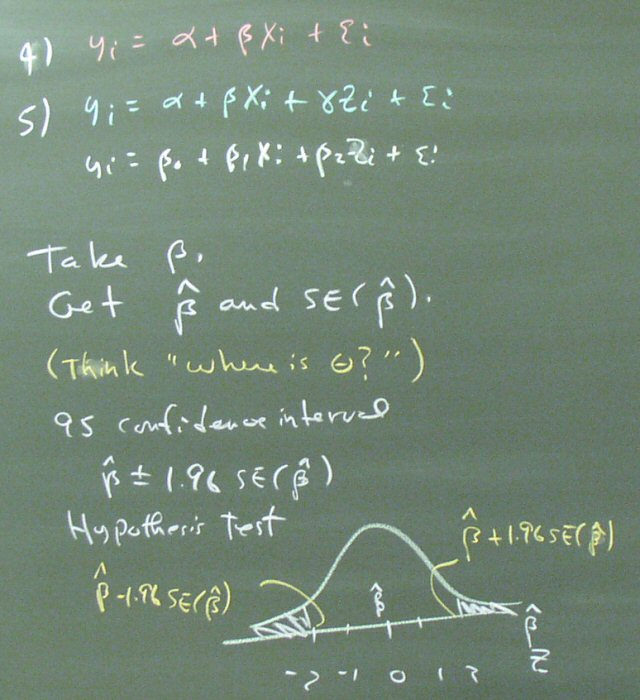 4) yi = α + βxi + εi
5) yi = α + βxi + γzi + εi
yi = β0 + β1xi + β2zi + εi
Take β.
Get β̂ and SE(β̂).
(Think "where is θ?")
95 confidence interval
β̂ ± 1.96 SE(β̂)
Hypothesis test
β̂ + 1.96 SE(β̂)
β̂ - 1.96 SE(β̂)
β̂
β̂
-2 -1 0 1 2
Z